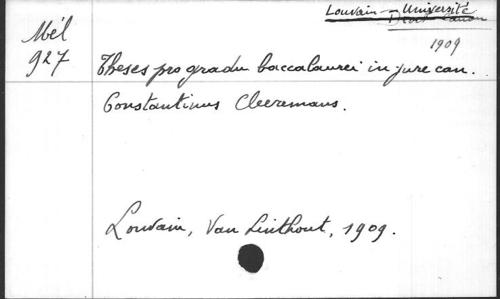 Louvain - Université
Droit canon
1909
Mél
927
Theses pro gradu baccalaurei in jure can.
Constantinus Cleeremans.
Louvain, Van Linthout, 1909.